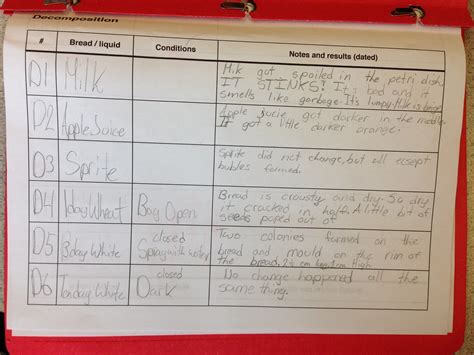 Decomposition
# Bread / liquid Conditions Notes and results (dated)
D1 Milk
Milk got spoiled in the petri dish.
IT STINKS! It's bad and it
smells like garbage. It's lumpy. Milk is
D2 Apple Juice
Apple jucie got darker in the middle.
It got a little darker orange.
D3 Sprite
Sprite did not change, but all ecsept
bubles formed.
D4 1day Wheat Bag Open
Bread is crousty and dry. So dry
it cracked in half. A little bit of
seeds poped out of
D5 3day White closed
Spray with water
Two colonies formed on the
bread and mould on the rim of
the bread. 2½ cm
D6 Tenday White closed
Dark
No change happened all the
same thing.